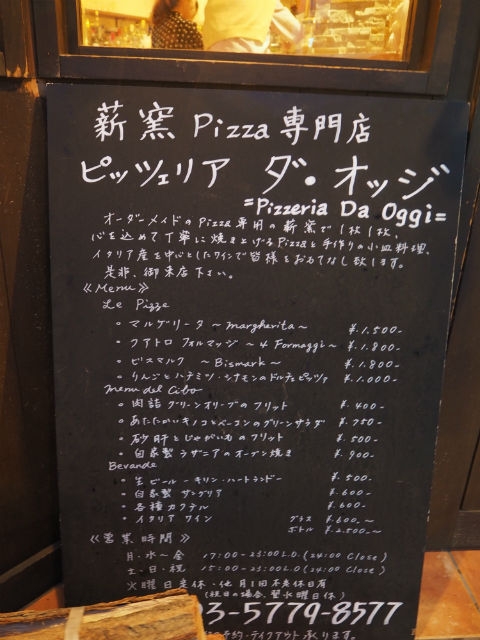 薪窯 Pizza 専門店
ピッツェリア ダ・オッジ
=Pizzeria Da Oggi=
オーダーメイドのPizza専用の薪窯で1枚1枚、
心を込めて丁寧に焼き上げるPizzaと手作りの小皿料理、
イタリア産を中心としたワインで皆様をおもてなし致します。
是非、御来店下さい。
《Menu》
Le Pizze
・マルゲリータ 〜margherita〜 ¥.1,500-
・クアトロ フォルマッジ 〜4 Formaggi〜 ¥.1,800-
・ビスマルク 〜Bismark〜 ¥.1,800-
・りんごとハチミツ・シナモンのドルチェピッツァ ¥.1,000-
Menu del Cibo
・肉詰グリーンオリーブのフリット ¥.400-
・あたたかいキノコとベーコンのグリーンサラダ ¥.750-
・砂肝とじゃがいものフリット ¥.500-
・自家製ラザニアのオーブン焼き ¥.900-
Bevande
・生ビール ーキリン・ハートランドー ¥.500-
・自家製 サングリア ¥.600-
・各種カクテル ¥.600-
・イタリア ワイン グラス ¥.600.〜
ボトル ¥.2,500.〜
《営業時間》
月・水〜金 17:00-23:00 L.O.(24:00 Close)
土・日・祝 15:00-23:00 L.O(24:00 Close)
火曜日定休・他月1回不定休日有
(祝日の場合、翌水曜日休)
03-5779-8577
予約・テイクアウト承ります。